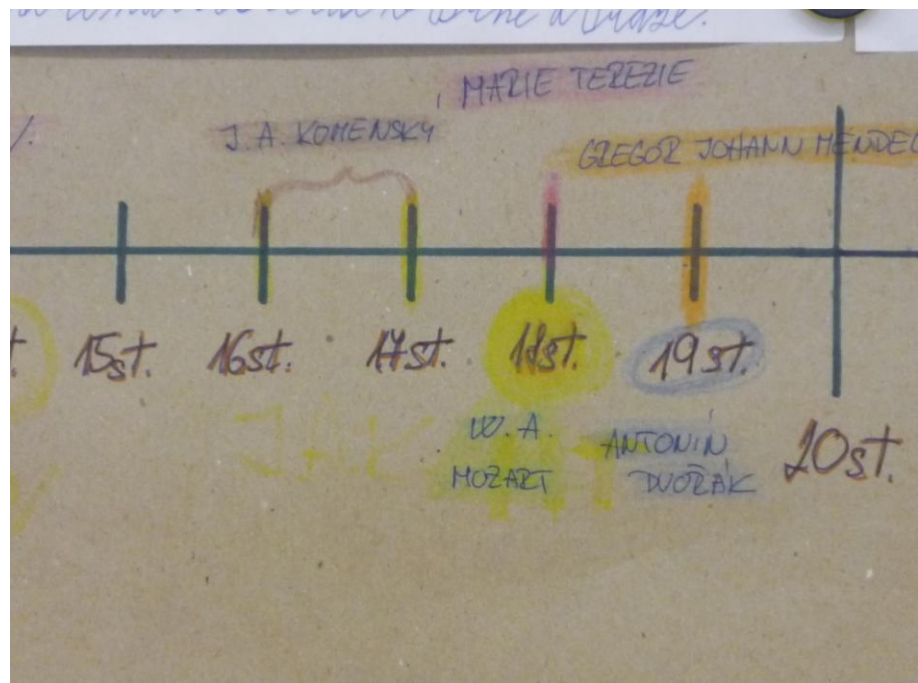 MARIE TEREZIE
J.A. KOMENSKÝ
GREGOR JOHANN MENDEL
15st. 16st. 17st. 18st. 19st.
20st.
W. A.
MOZART
ANTONÍN
DVOŘÁK